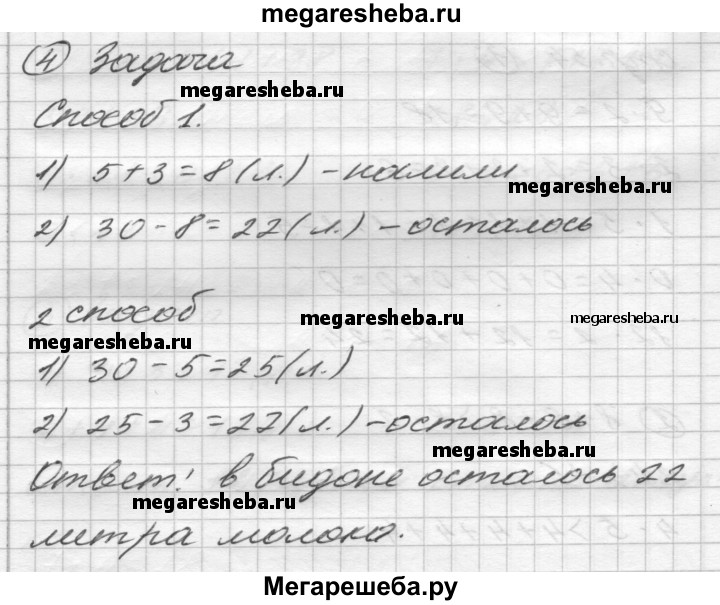 megaresheba.ru
④ Задача
megaresheba.ru
Способ 1.
1) 5+3=8(л.) – налили
megaresheba.ru
2) 30-8=22(л.) – осталось
2 способ
megaresheba.ru
megaresheba.ru
megaresheba.ru
1) 30-5=25(л.)
2) 25-3=22(л.) – осталось
megaresheba.ru
Ответ: в бидоне осталось 22
megaresheba.ru
литра молока.
Мегарешеба.ру